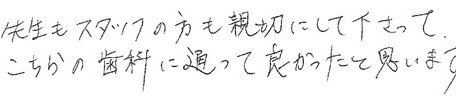 先生もスタッフの方も親切にして下さって、
こちらの歯科に通って良かったと思います